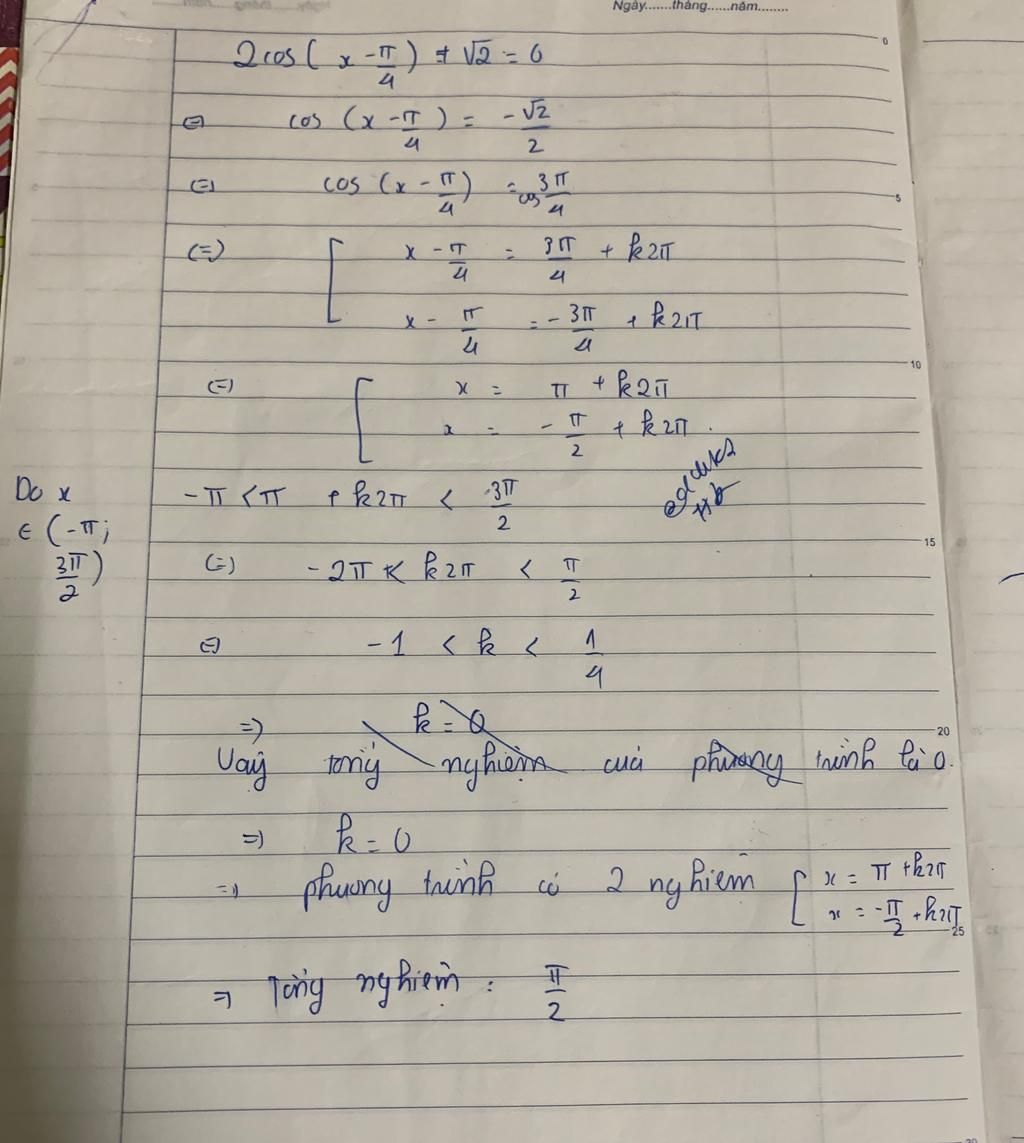 Ngày.......tháng......năm........
2cos(x - π/4) + √2 = 0
(=) cos(x - π/4) = -√2/2
(=) cos(x - π/4) = cos 3π/4
(=) [ x - π/4 = 3π/4 + k2π
x - π/4 = -3π/4 + k2π
(=) [ x = π + k2π
x = -π/2 + k2π.
Do x ∈ (-π; 3π/2)
-π < π + k2π < 3π/2
(=) -2π < k2π < π/2
(=) -1 < k < 1/4
=) k = 0
Vaỹ tổng nghiệm củả phương trình là 0.
=) k = 0
=) phương trình có 2 nghiệm [ x = π + k2π
x = -π/2 + k2π
=) Tổng nghiệm : π/2
0
5
10
15
20
25